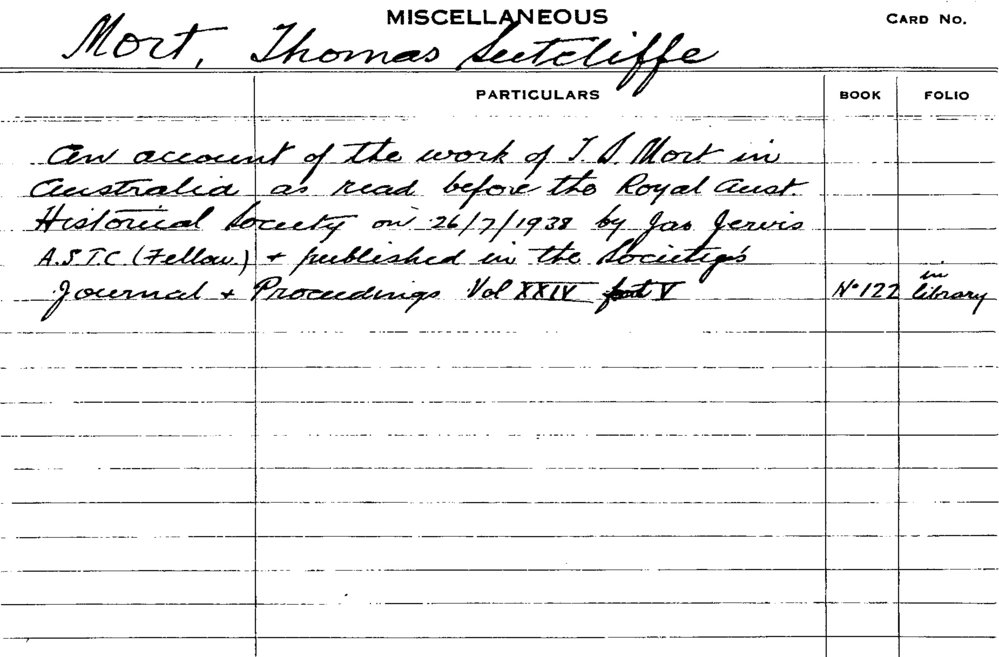 MISCELLANEOUS
CARD NO.
Mort, Thomas Sutcliffe
PARTICULARS BOOK FOLIO
An account of the work of T. S. Mort in
Australia as read before the Royal Aust.
Historical Society on 26/7/1938 by Jas Jervis
A.S.T.C (Fellow.) + published in the Society's
in
Journal + Proceedings Vol XXIV part V No 122 library